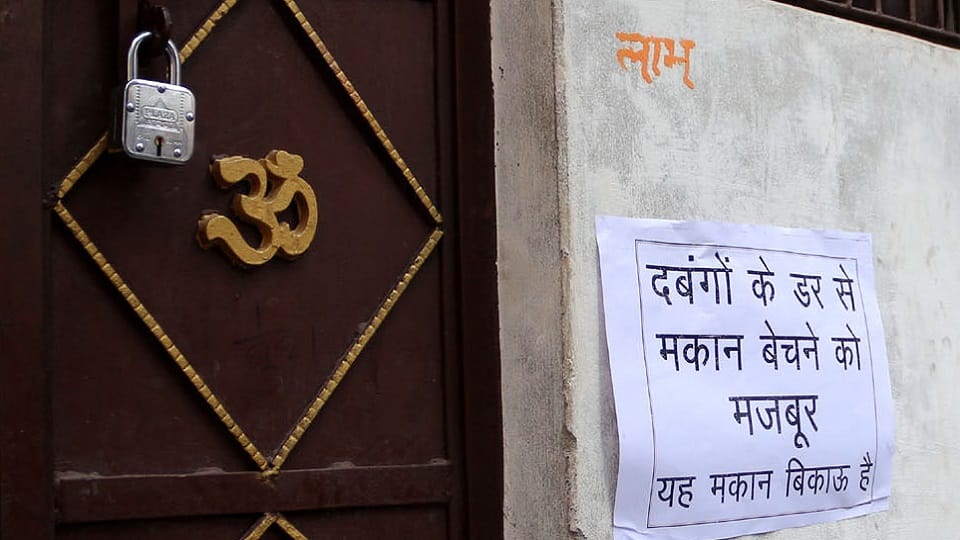 लाभ
PLAZA
ॐ
दबंगों के डर से
मकान बेचने को
मजबूर
यह मकान बिकाऊ है